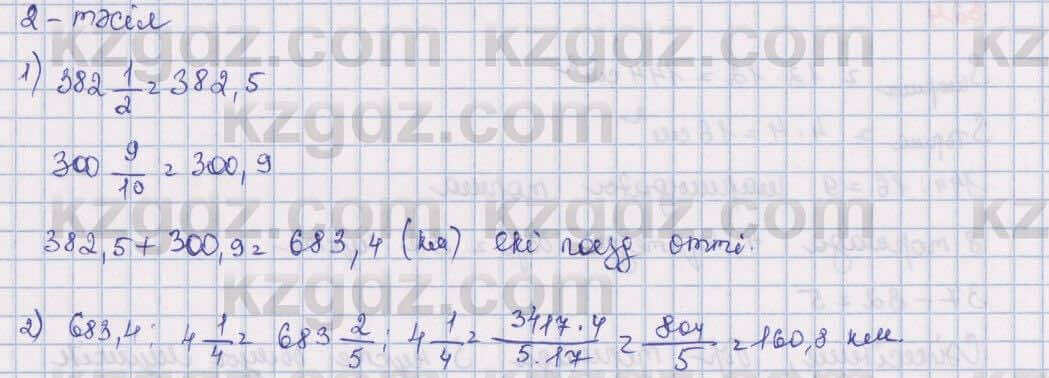 2 - тәсіл
1) 382 1/2 = 382,5
300 9/10 = 300,9
382,5 + 300,9 = 683,4 (км) екі поезд өтті.
2) 683,4 : 4 1/4 = 683 2/5 : 4 1/4 = 3417·4/5·17 = 804/5 = 160,8 км.
kzgdz.com kzgdz.com kz
kzgdz.com kzgdz.com
kzgdz.com kzgdz.com kz
kzgdz.com kzgdz.com